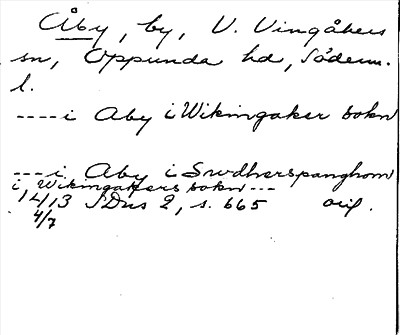 Åby, by, V. Vingåkers
sn, Oppunda hd, Söderm.
l.
----i Aby i Wikingaker sokn
---i Aby i Swdherspanghom
i Wikingakers sokn---
14/13 SDns 2, s. 665 orig.
4/7